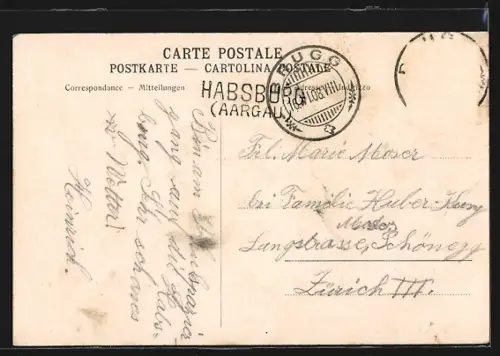 CARTE POSTALE
POSTKARTE — CARTOLINA POSTALE
Correspondance — Mitteilungen
HABSBURG
(AARGAU)
BRUGG
VIII.08
Bin am
gang auf die Habs-
burg. Sehr schönes
Wetter!
Heinrich.
Frl. Marie Moser
bei Familie Huber-Kunz
Moser
Langstrasse, Schönegg
Zürich III.